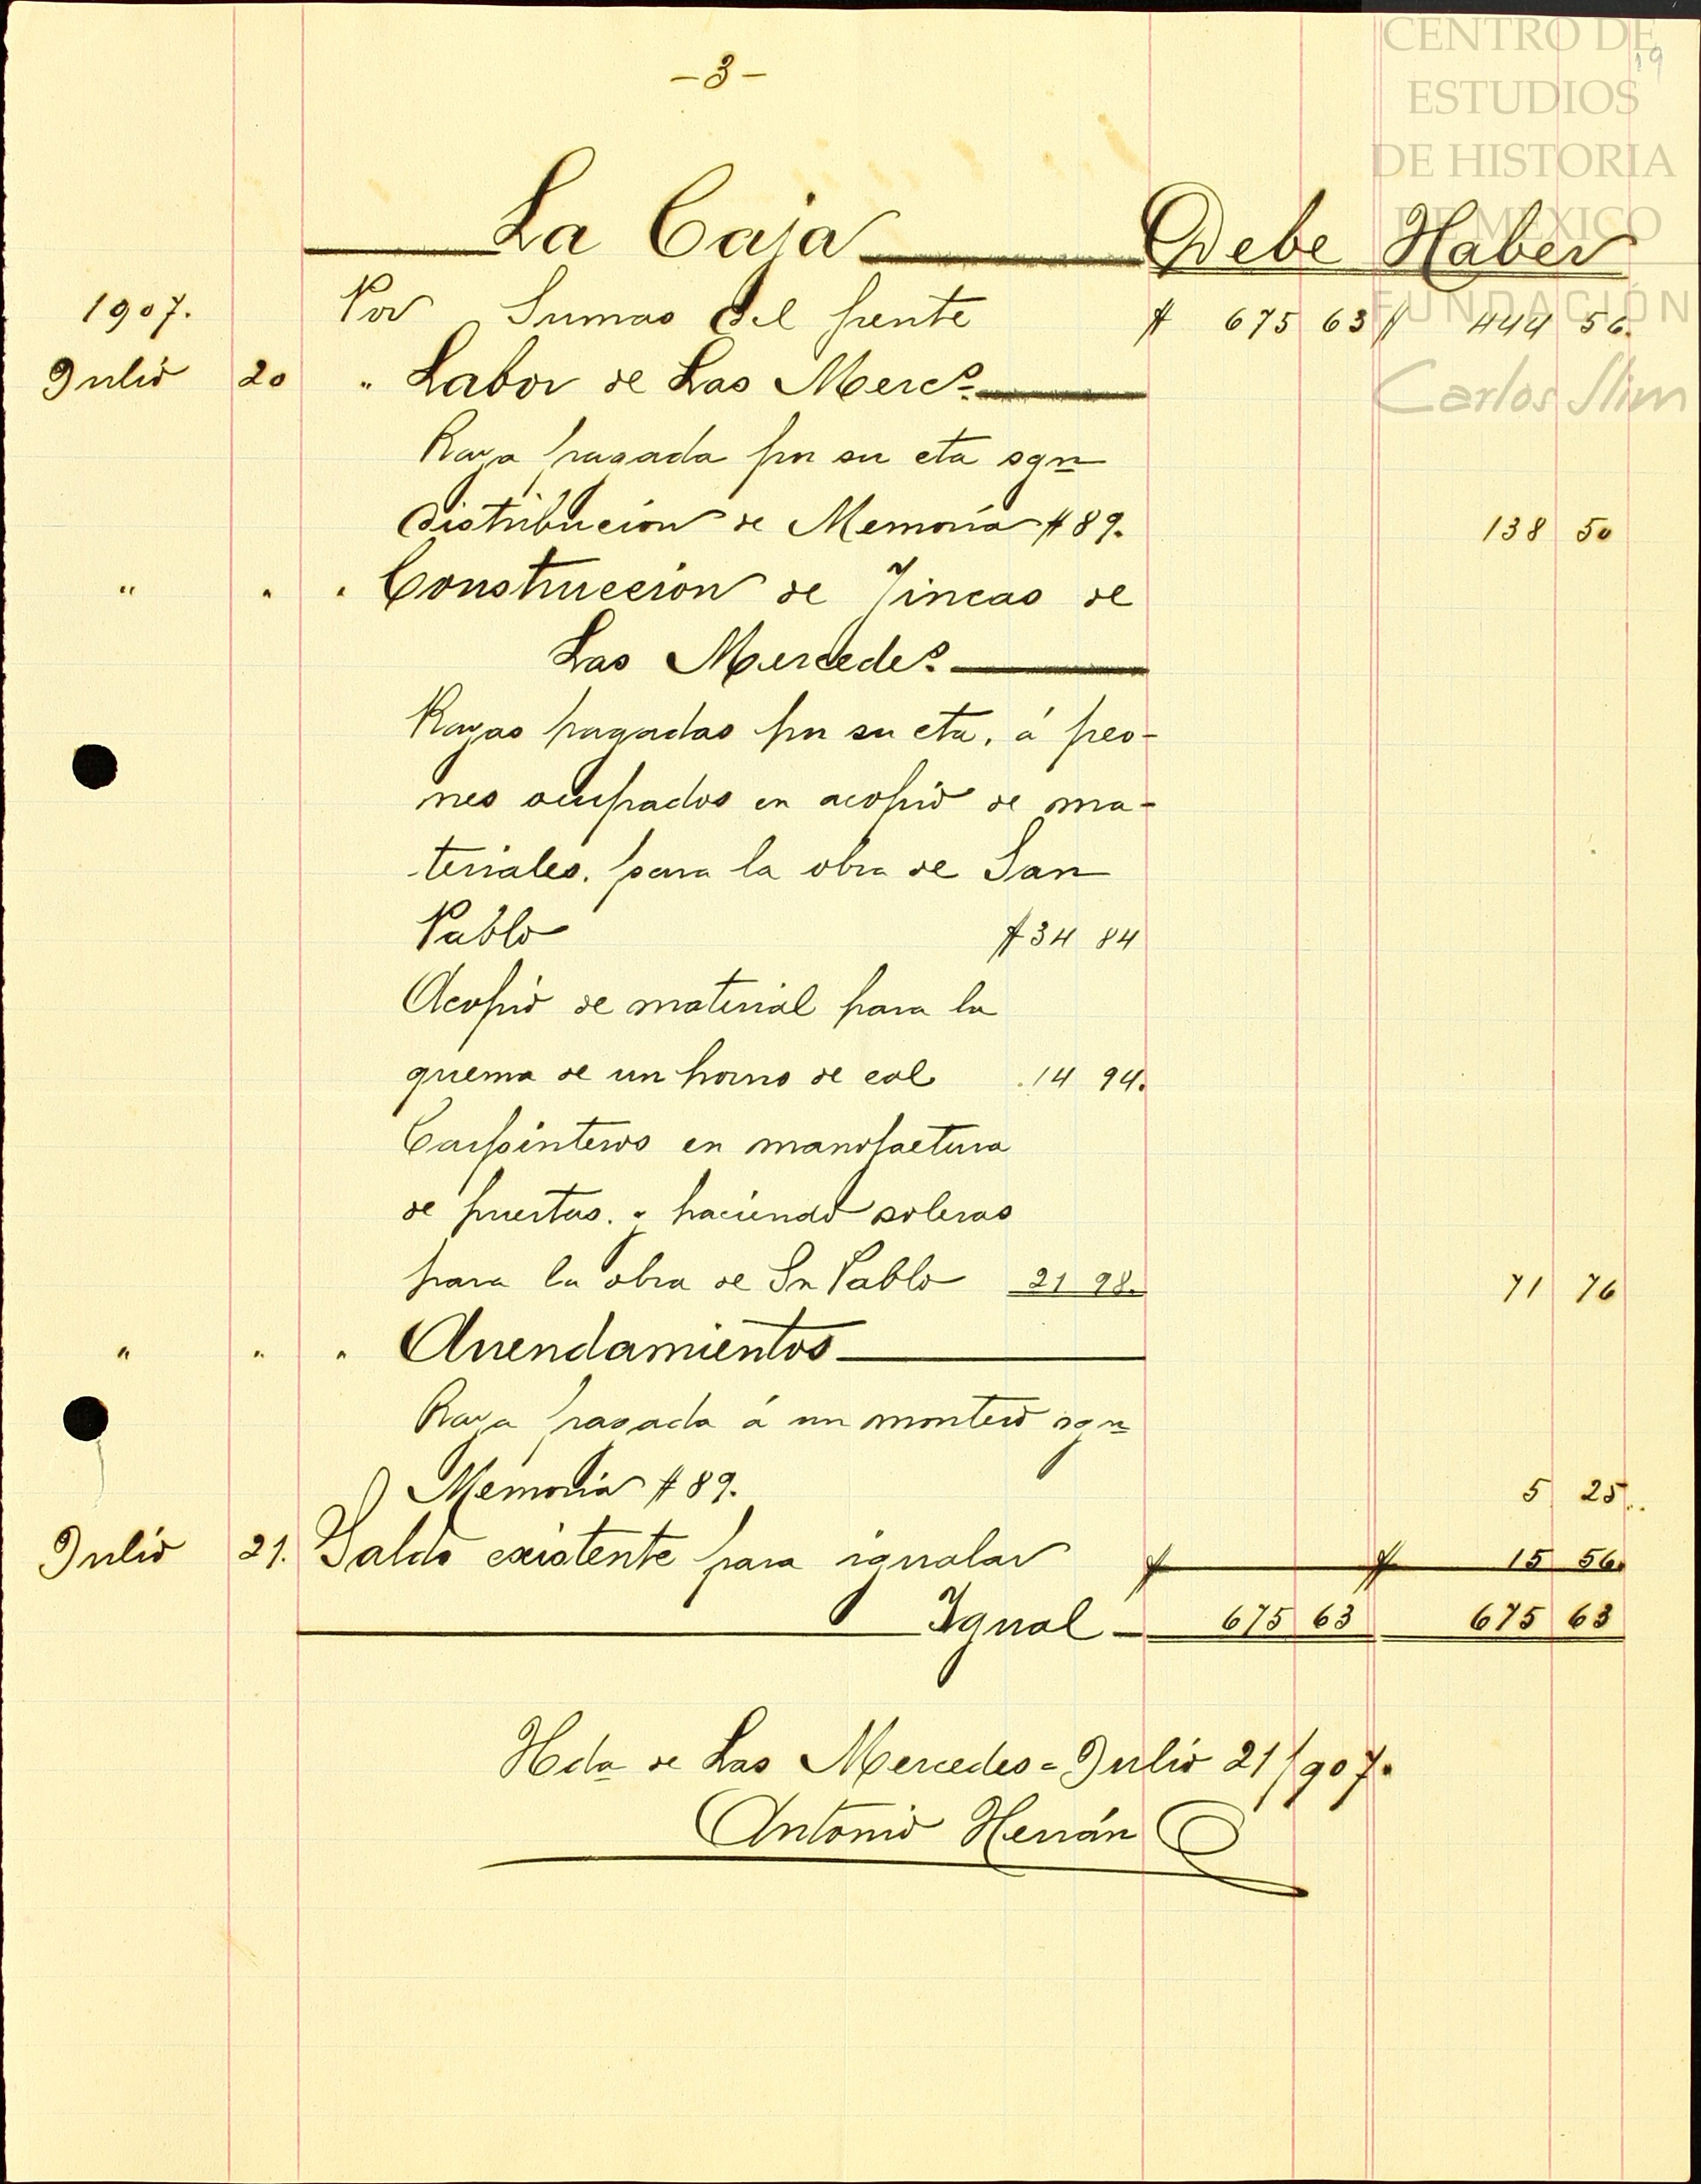 -3-
19
CENTRO DE
ESTUDIOS
DE HISTORIA
DE MÉXICO
FUNDACIÓN
Carlos Slim
La Caja Debe Haber
1907. Por Sumas del frente $ 675 63 $ 444 56.
Julio 20 " Labor de Las Merc.s
Raya pagada por su cta sgn
distribución de Memoria #89. 138 50
" " " Construcción de Fincas de
Las Mercedes
Rayas pagadas por su cta. á peo-
nes ocupados en acopio de ma-
teriales. para la obra de San
Pablo $34 84
Acopio de material para la
quema de un horno de cal 14 94.
Carpinteros en manofactura
de puertas. y haciendo soleras
para la obra de Sn Pablo 21 98. 71 76
" " " Arrendamientos
Raya pagada á un montero sgn
Memoria #89. 5 25
Julio 21. Saldo existente para igualar $ $ 15 56.
Igual 675 63 675 63
Hda de Las Mercedes = Julio 21/907.
Antonio Herrán